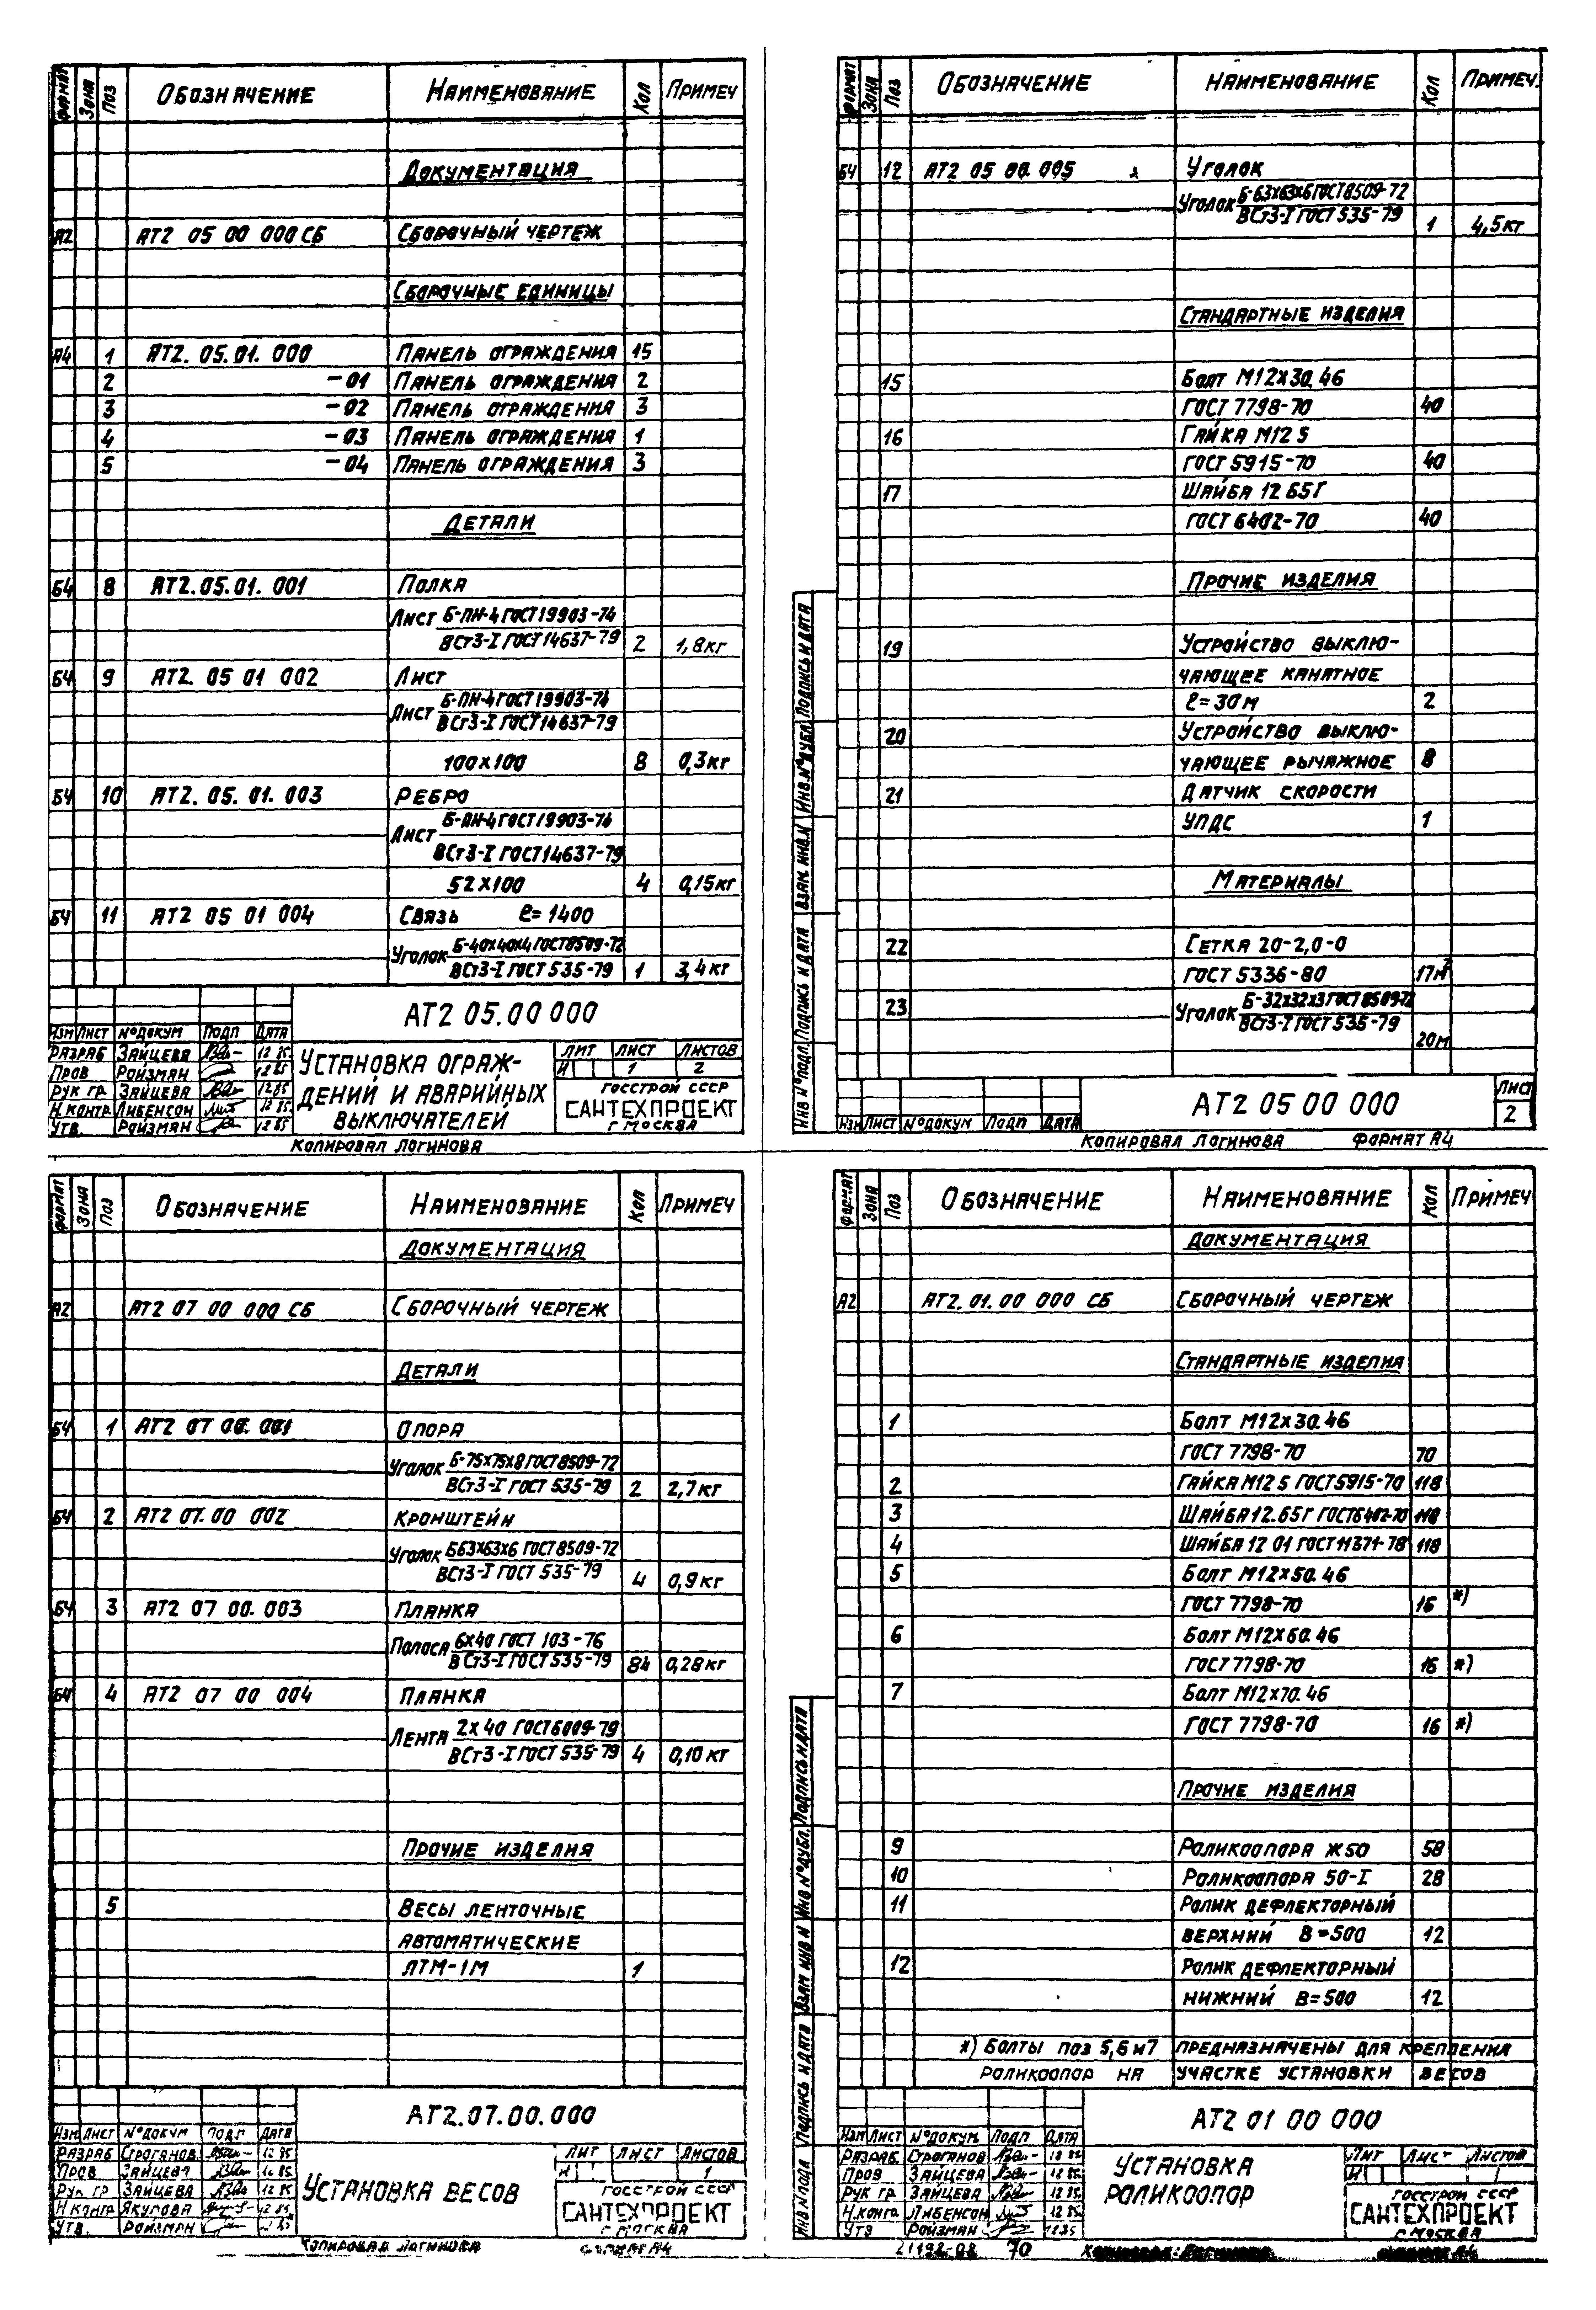 Формат Зона Поз Обозначение Наименование Кол Примеч
Документация
А2 АТ2 05 00 000 СБ Сборочный чертеж
Сборочные единицы
А4 1 АТ2. 05. 01. 000 Панель ограждения 15
2 -01 Панель ограждения 2
3 -02 Панель ограждения 3
4 -03 Панель ограждения 1
5 -04 Панель ограждения 3
Детали
Б4 8 АТ2. 05. 01. 001 Полка
Лист Б-ПН-4 ГОСТ 19903-74
ВСт3-I ГОСТ 14637-79 2 1,8кг
Б4 9 АТ2. 05 01 002 Лист
Лист Б-ПН-4 ГОСТ 19903-74
ВСт3-I ГОСТ 14637-79
100х100 8 0,3кг
Б4 10 АТ2. 05. 01. 003 Ребро
Лист Б-ПН-4 ГОСТ 19903-74
ВСт3-I ГОСТ 14637-79
52х100 4 0,15кг
Б4 11 АТ2 05 01 004 Связь ℓ=1400
Уголок Б-40х40х4 ГОСТ 8509-72
ВСт3-I ГОСТ 535-79 1 3,4кг
АТ2 05.00 000
Изм Лист №докум Подп Дата
Разраб Зайцева 12 85
Пров Ройзман 12 85
Рук гр. Зайцева 12.85
Н.контр Либенсон 12 85
Утв. Ройзман 12 85
Установка ограждений и аварийных выключателей
Лит Лист Листов
И 1 2
Госстрой СССР
САНТЕХПРОЕКТ
г Москва
Копировал Логинова
Формат Зона Поз Обозначение Наименование Кол Примеч.
Б4 12 АТ2 05 00. 005 Уголок
Уголок Б-63х63х6 ГОСТ 8509-72
ВСт3-I ГОСТ 535-79 1 4,5кг
Стандартные изделия
15 Болт М12х30.46
ГОСТ 7798-70 40
16 Гайка М12 5
ГОСТ 5915-70 40
17 Шайба 12 65Г
ГОСТ 6402-70 40
Прочие изделия
19 Устройство выклю-
чающее канатное
ℓ=30м 2
20 Устройство выклю-
чающее рычажное 8
21 Датчик скорости
УПДС 1
Материалы
22 Сетка 20-2,0-0
ГОСТ 5336-80 17м²
23 Уголок Б-32х32х3 ГОСТ 8509-72
ВСт3-I ГОСТ 535-79
20м
Инв №подл Подпись и дата Взам. инв.№ Инв.№дубл Подпись и дата
АТ2 05 00 000
Лист
2
Изм Лист №докум Подп Дата
Копировал Логинова Формат А4
Формат Зона Поз Обозначение Наименование Кол Примеч
Документация
А2 АТ2 07 00 000 СБ Сборочный чертеж
Детали
Б4 1 АТ2 07 00. 001 Опора
Уголок Б-75х75х8 ГОСТ 8509-72
ВСт3-I ГОСТ 535-79 2 2,7кг
Б4 2 АТ2 07. 00 002 Кронштейн
Уголок Б63х63х6 ГОСТ 8509-72
ВСт3-I ГОСТ 535-79
4 0,9кг
Б4 3 АТ2 07 00. 003 Планка
Полоса 6х40 ГОСТ 103-76
ВСт3-I ГОСТ 535-79 84 0,28кг
Б4 4 АТ2 07 00 004 Планка
Лента 2х40 ГОСТ 6009-79
ВСт3-I ГОСТ 535-79 4 0,10кг
Прочие изделия
5 Весы ленточные
автоматические
ЛТМ-1М 1
АТ2.07.00.000
Изм Лист №докум Подп Дата
Разраб Строганов 12 85
Пров Зайцева 12 85.
Рук гр Зайцева 12 85
Н контр Якупова 12 85
Утв. Ройзман
Установка весов
Лит Лист Листов
И 1
Госстрой СССР
САНТЕХПРОЕКТ
г Москва
Копировал Логинова Формат А4
Формат Зона Поз Обозначение Наименование Кол Примеч
Документация
А2 АТ2. 01. 00 000 СБ Сборочный чертеж
Стандартные изделия
1 Болт М12х30.46
ГОСТ 7798-70 70
2 Гайка М12 5 ГОСТ 5915-70 118
3 Шайба 12.65Г ГОСТ 6402-70 118
4 Шайба 12 01 ГОСТ 11371-78 118
5 Болт М12х50.46
ГОСТ 7798-70 16 *)
6 Болт М12х60.46
ГОСТ 7798-70 16 *)
7 Болт М12х70.46
ГОСТ 7798-70 16 *)
Прочие изделия
9 Роликоопора Ж50 58
10 Роликоопора 50-I 28
11 Ролик дефлекторный
верхний В=500 12
12 Ролик дефлекторный
нижний В=500 12
*) Болты поз 5,6 и 7 предназначены для крепления
роликоопор на участке установки весов
Инв №подл Подпись и дата Взам инв № Инв №дубл. Подпись и дата
АТ2 01 00 000
Изм Лист №докум. Подп Дата
Разраб. Строганов 12 85.
Пров Зайцева 12 85.
Рук гр. Зайцева 12 85.
Н.контр. Либенсон 12 85.
Утв Ройзман 12 85
Установка роликоопор
Лит Лист Листов
И 1
Госстрой СССР
САНТЕХПРОЕКТ
г Москва
21192-02 70